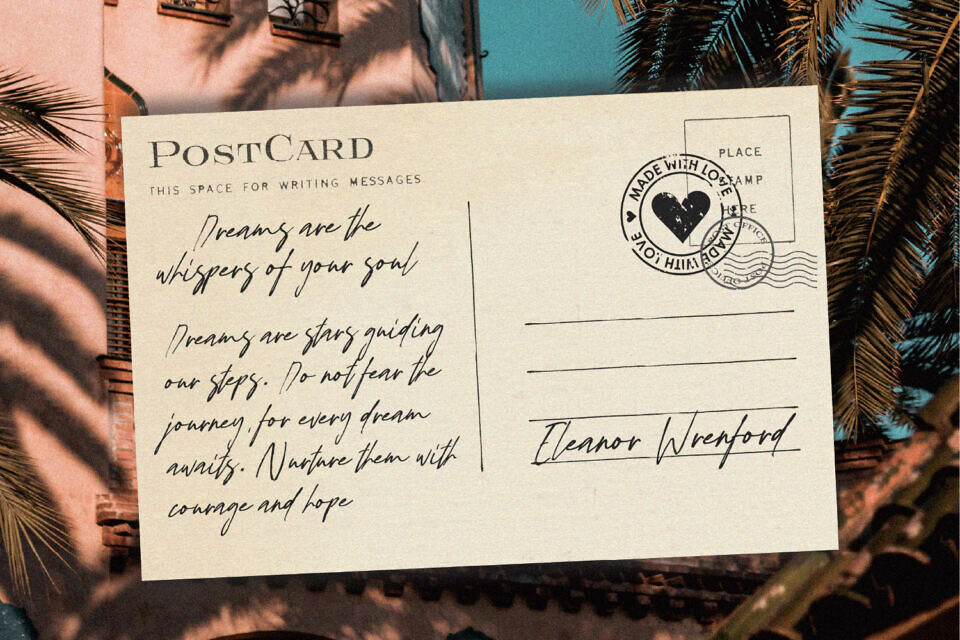 PostCard
THIS SPACE FOR WRITING MESSAGES
Dreams are the
whispers of your soul
Dreams are stars guiding
our steps. Do not fear the
journey, for every dream
awaits. Nurture them with
courage and hope
PLACE
STAMP
HERE
MADE WITH LOVE
MADE WITH LOVE
POST OFFICE
Eleanor Wrenford